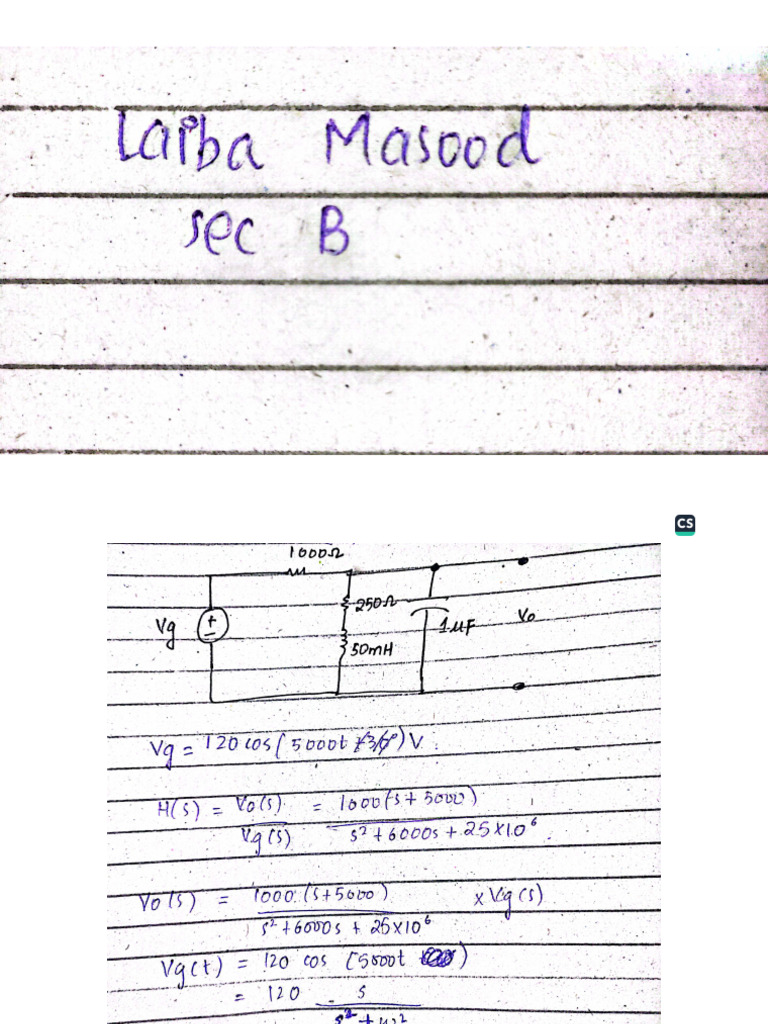 Laiba Masood
sec B
CS
1000Ω
250Ω
Vg
+
-
1μF
Vo
50mH
Vg = 120 cos(5000t + 30°) V
H(s) = Vo(s) / Vg(s) = 1000(s + 5000) / s² + 6000s + 25×10⁶
Vo(s) = 1000(s+5000) / s² + 6000s + 25×10⁶ × Vg(s)
Vg(t) = 120 cos (5000t )
= 120 s / s² + ω²